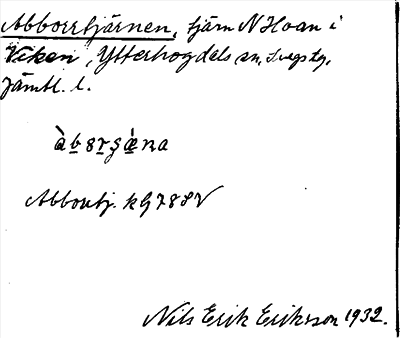 Abborrtjärnen, tjärn N Hoan i
Viken, Ytterhogdals sn, Svegs tg,
Jämtl. l.
Abbortj. kG 78 SV
Nils Erik Eriksson 1932.